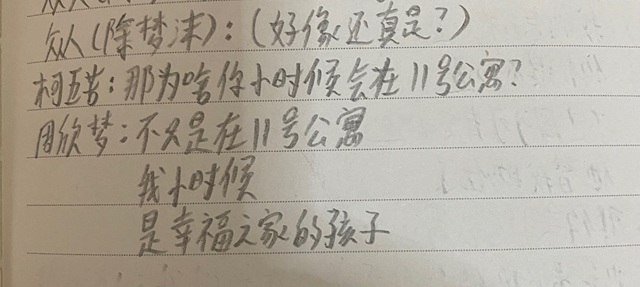 众人(除梦沫):(好像还真是?)
柯五苦:那为啥你小时候会在11号公寓?
周欣梦:不只是在11号公寓
我小时候
是幸福之家的孩子